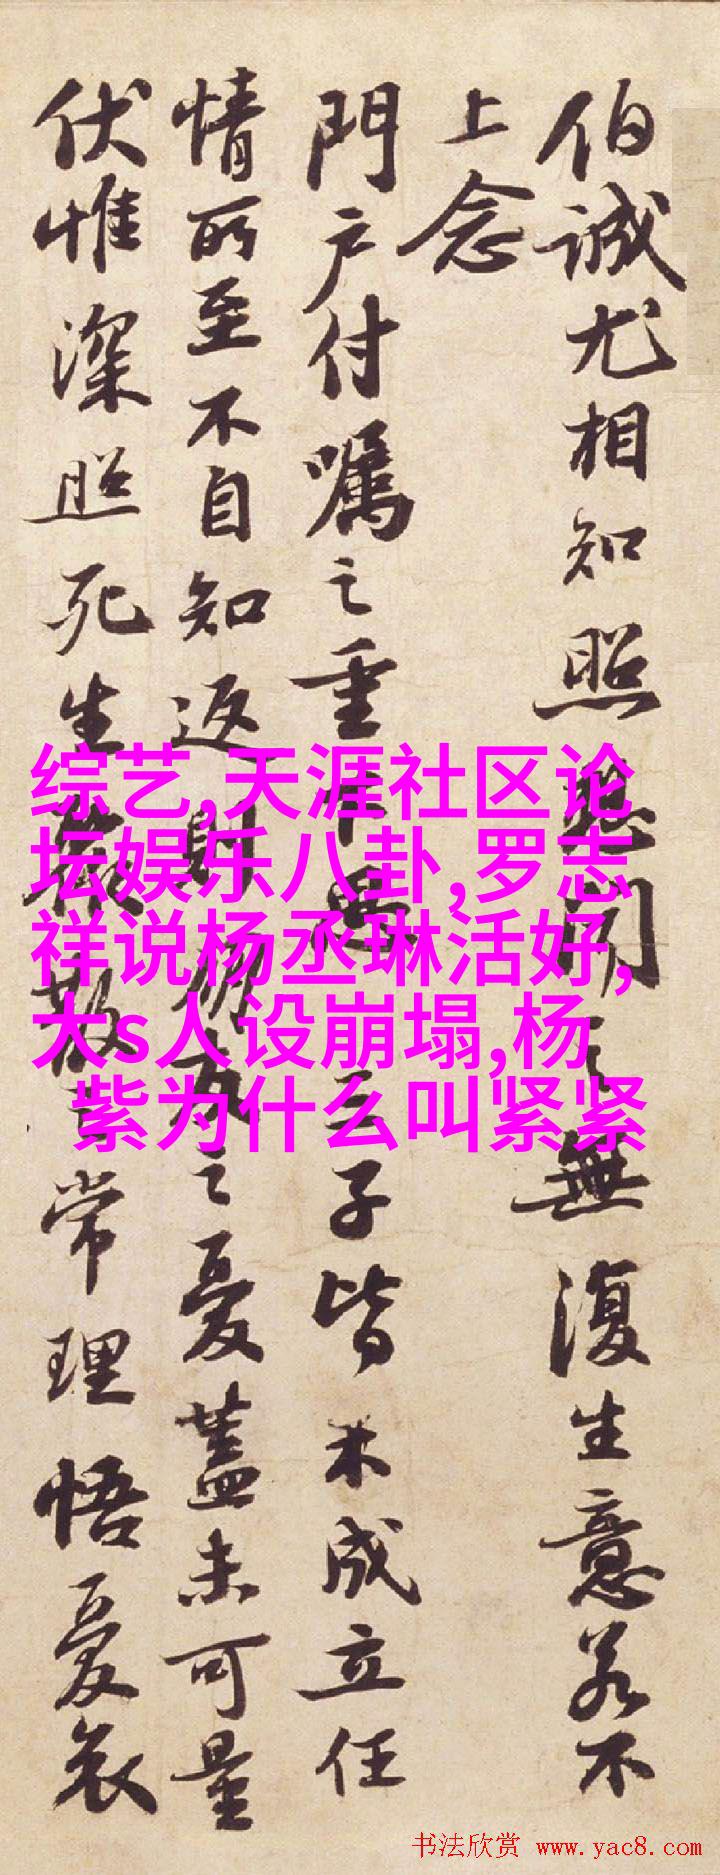 伯誠尤相知照想聞之無復生意若不
上念
門户付囑之重下思三子皆未成立任
情所至不自知返則朋友之憂蓋未可量
伏惟深照死生聚散之常理悟憂哀
综艺,天涯社区论
坛娱乐八卦,罗志
祥说杨丞琳活好,
大s人设崩塌,杨
紫为什么叫紧紧
书法欣赏 www.yac8.com